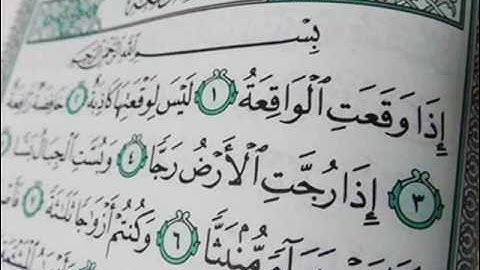 بِسْمِ ٱللَّهِ ٱلرَّحْمَٰنِ ٱلرَّحِيمِ
إِذَا وَقَعَتِ ٱلْوَاقِعَةُ ١ لَيْسَ لِوَقْعَتِهَا كَاذِبَةٌ ٢ خَافِضَةٌ رَّافِعَةٌ
٣ إِذَا رُجَّتِ ٱلْأَرْضُ رَجًّا ٤ وَبُسَّتِ ٱلْجِبَالُ بَسًّا ٥
مُّنۢبَثًّا ٦ وَكُنتُمْ أَزْوَٰجًا ثَلَٰثَةً ٧